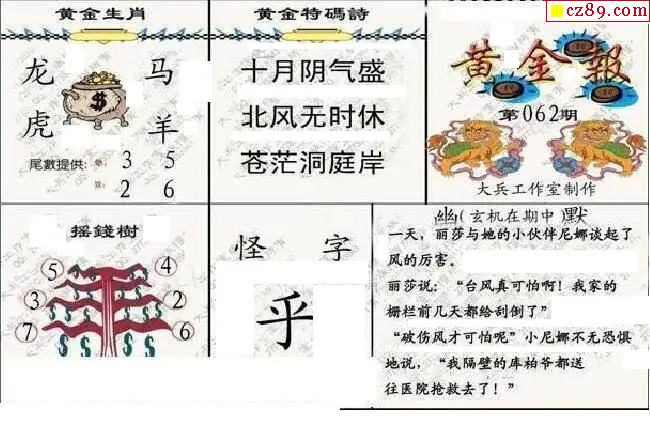 cz89.com
黄金生肖
龙 马
虎 羊
尾數提供：单：3 5
双：2 6
黄金特碼詩
十月阴气盛
北风无时休
苍茫洞庭岸
黄金報
第062期
大兵工作室制作
摇錢樹
5 4
3 2
7 6
怪字
乎
幽(玄机在期中)默
一天，丽莎与她的小伙伴尼娜谈起了
风的厉害。
丽莎说：“台风真可怕啊！我家的
栅栏前几天都给刮倒了”
“破伤风才可怕呢”小尼娜不无恐惧
地说，“我隔壁的库柏爷都送
往医院抢救去了！”